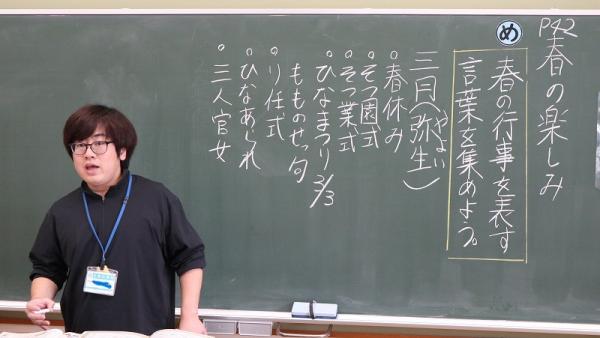 P42
春の楽しみ
め
春の行事を表す
言葉を集めよう。
三月(弥生)
やよい
。春休み
。そつ園式
。そつ業式
。ひなまつり 3/3
もものせっ句
。り任式
。ひなあられ
。三人官女